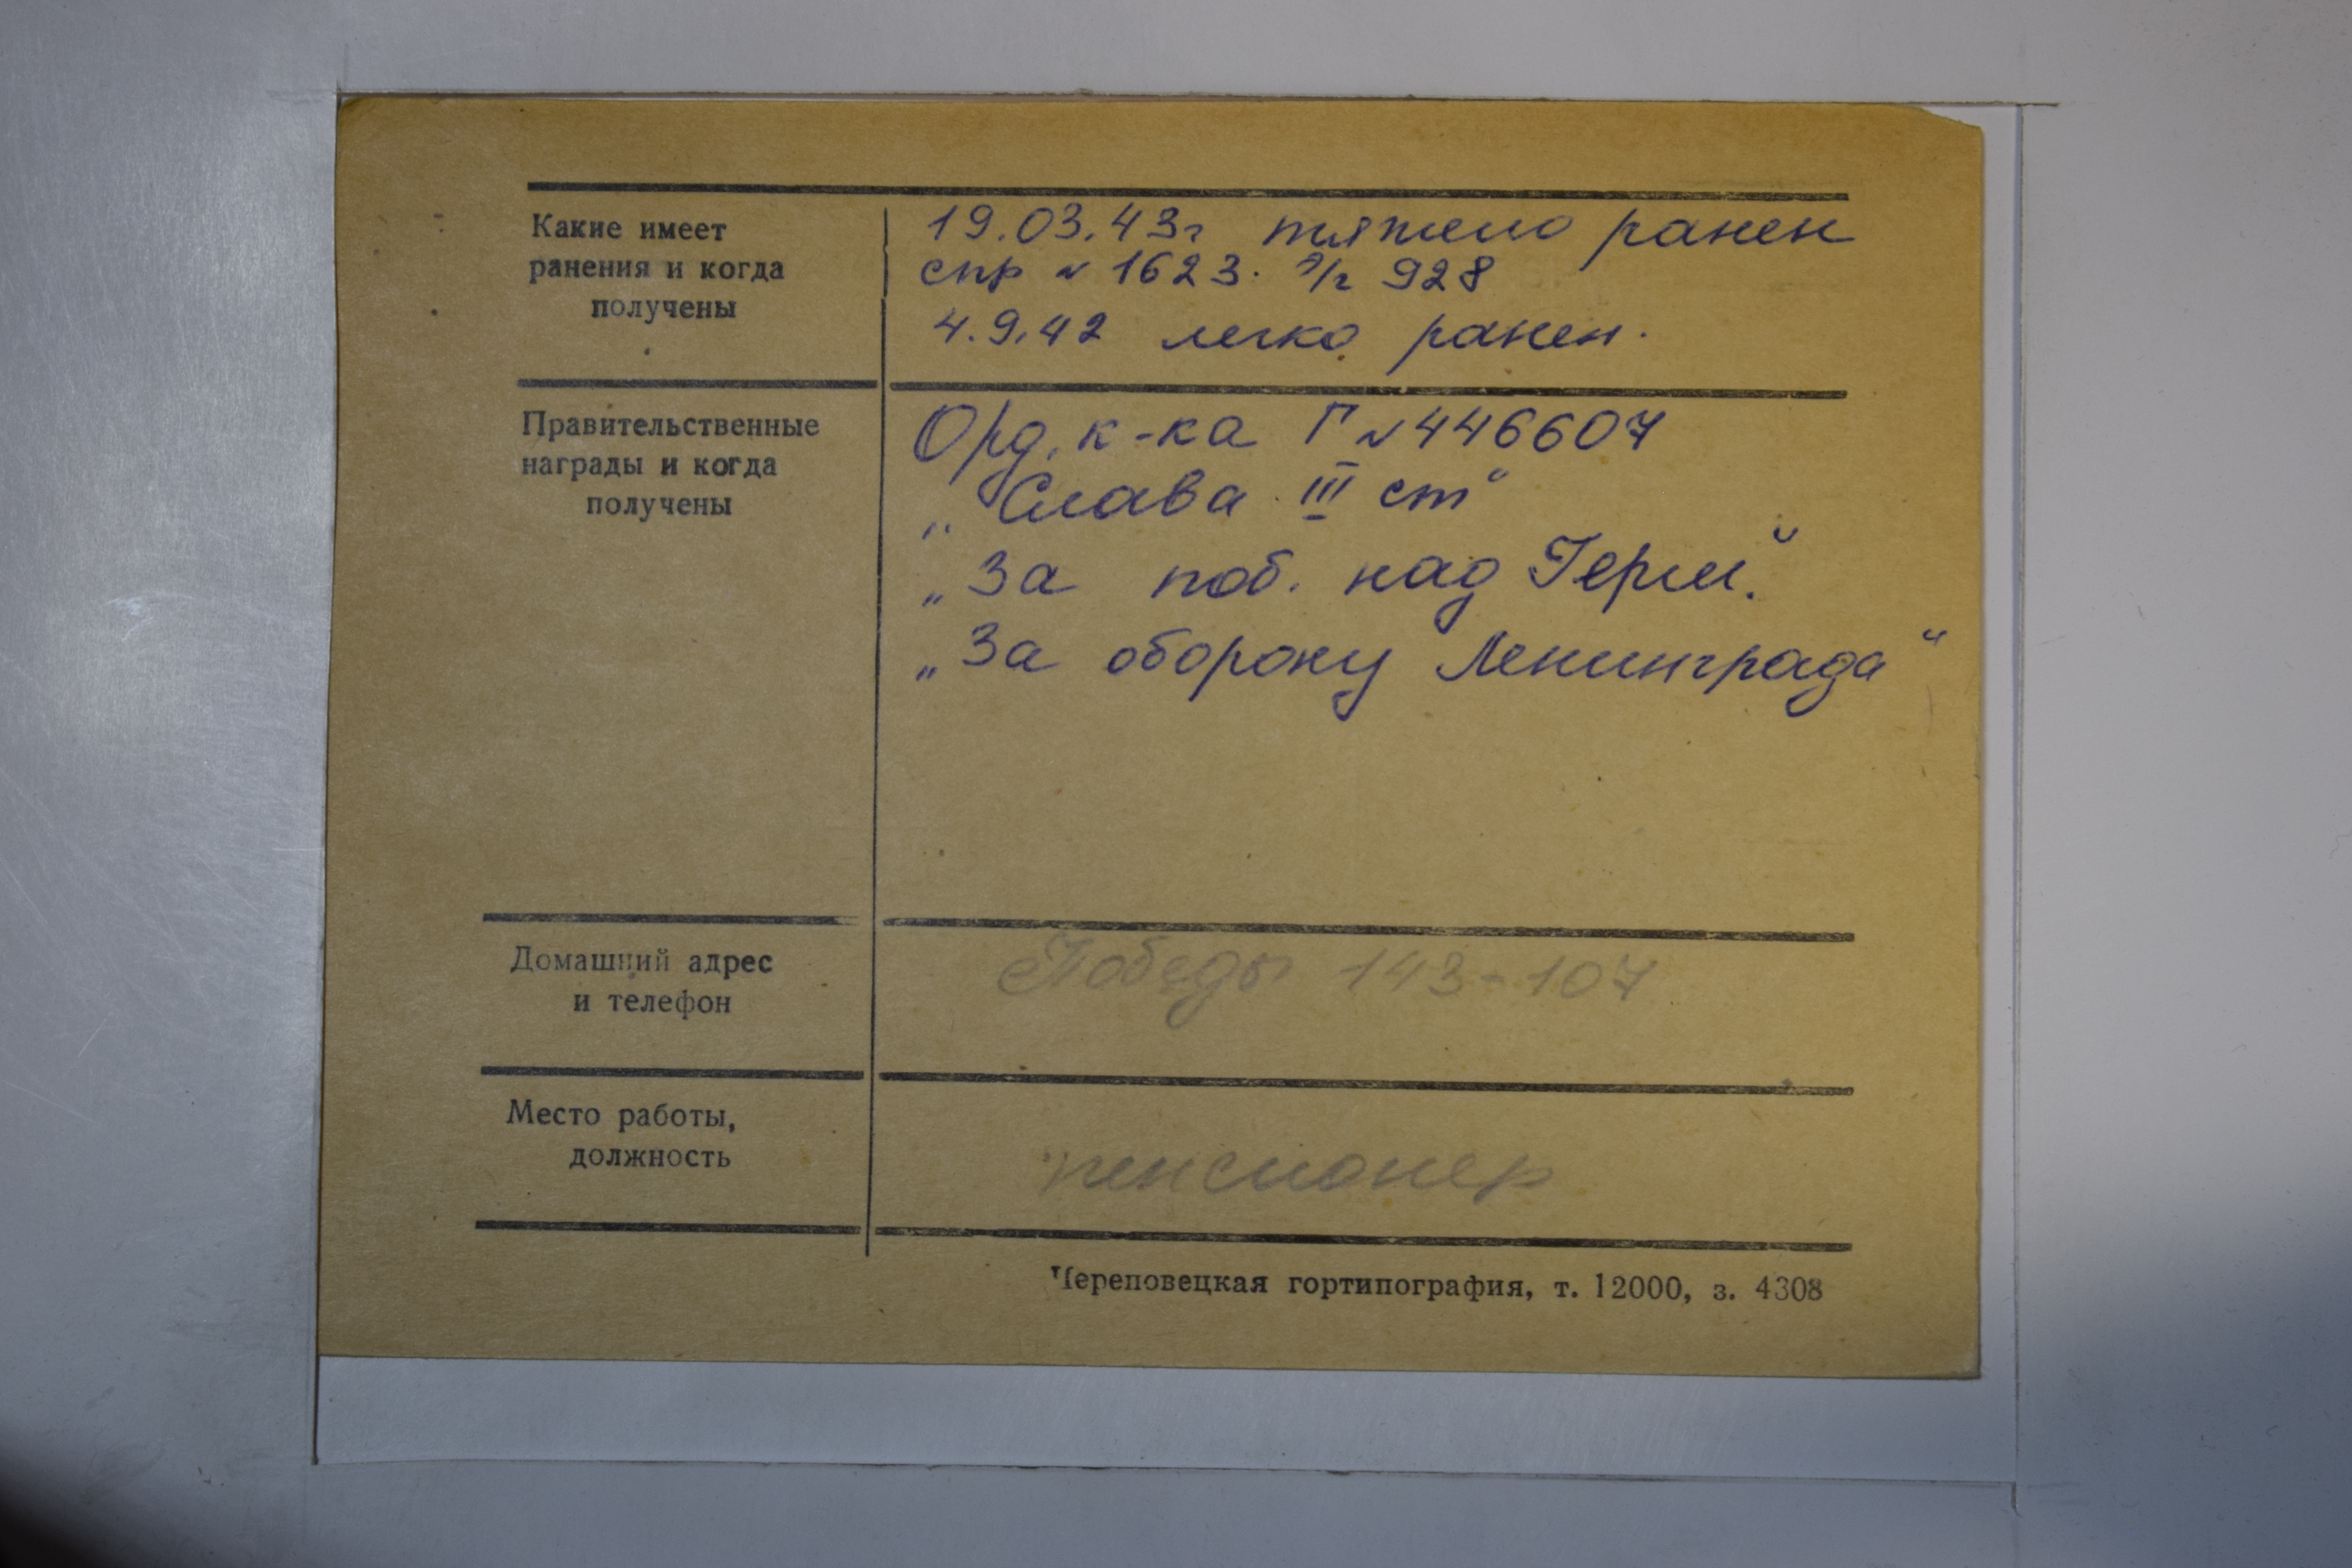 Какие имеет
ранения и когда
получены
19.03.43г тяжело ранен
спр № 1623. э/г 928
4.9.42 легко ранен.
Правительственные
награды и когда
получены
Орд. к-ка Г №446607
„Слава III ст“
„За поб. над Герм.“
„За оборону Ленинграда“
Домашний адрес
и телефон
Победы 143-107
Место работы,
должность
пенсионер
Череповецкая гортипография, т. 12000, з. 4308